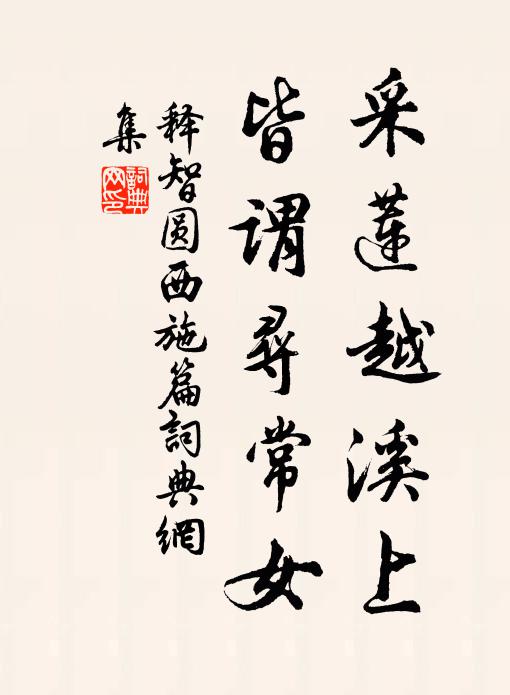 采莲越溪上
皆谓寻常女
释智圆西施篇詞典網
集
詞典网印